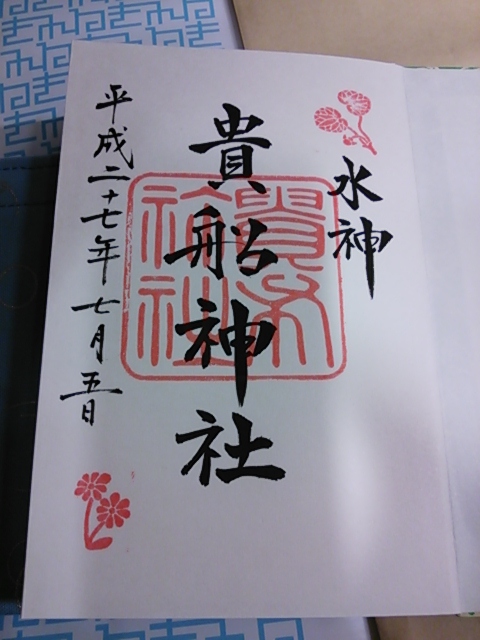 水神
貴船神社
平成二十七年七月五日